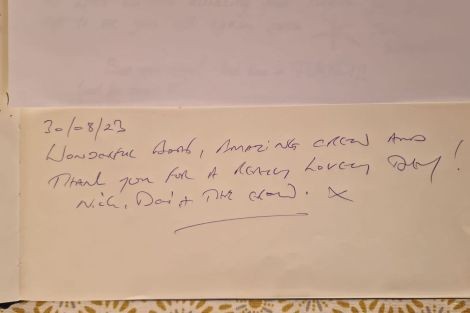 30/08/23
Wonderful Boat, Amazing crew and
Thank you for a really lovely Day!
Nick, & The crowd. X